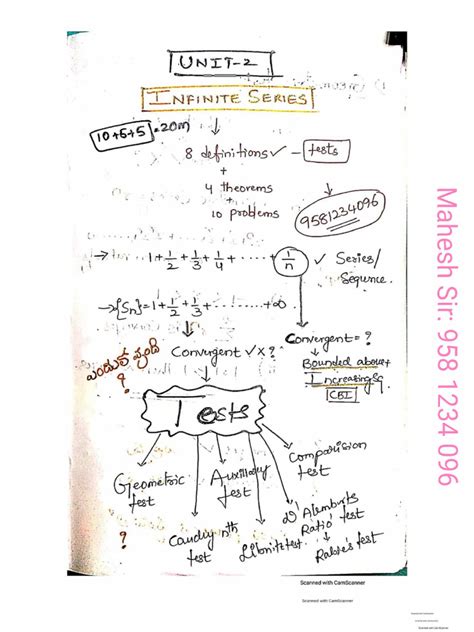 UNIT-2
INFINITE SERIES
10+5+5=20m
8 definitions✓ - tests
+
4 theorems
+
10 problems
9581234096
→ 1+1/2+1/3+1/4+.....+1/n ✓ Series/
Sequence.
→{Sn}=1+1/2+1/3+.........+∞
Convergent = ?
Convergent ✓ x ?
Bounded above+
Increasing Sq
CBI
?
Tests
Geometric
test
Auxillary
test
Comparision
test
?
Cauchy nth
test
Libnitz test
D'Alemburts
Ratio test
→ Rabie's test
Mahesh Sir: 958 1234 096
Scanned with CamScanner
Scanned with CamScanner
Scanned with CamScanner